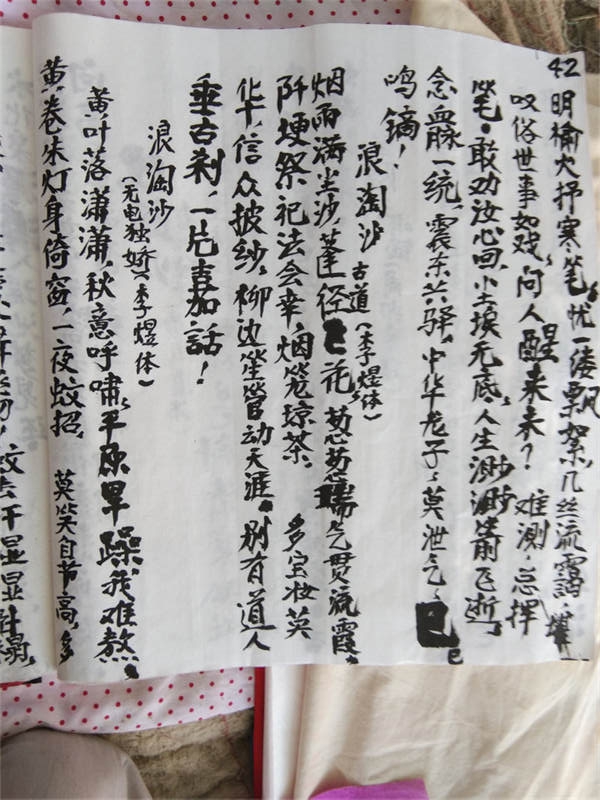 42
明榆火抒寒笔。忧一缕飘絮,几丝流霭,堪
叹俗世事如戏,问人醒来未? 难测,总挥
笔。敢劝汝心回,小尘埃无底,人生渺渺箭飞逝,
念 一统,震东共驿,中华龙子,莫泄气,已
鸣镝!
浪淘沙 古道(李煜体)
烟雨满尘沙,蓬径已花,葱葱瑞气贯流霞
阡埂祭祀法会幸,烟笼琼茶。 多宝妆英
华,信众披纱。柳边笙管动天涯。别有道人
垂古刹,一片嘉話!
浪淘沙
(无电独娇)(李煜体)
黄叶落潇潇,秋意呼啸,平原旱躁我难熬。
黄卷朱灯身倚窗,一夜蚊招, 莫笑自节高,多